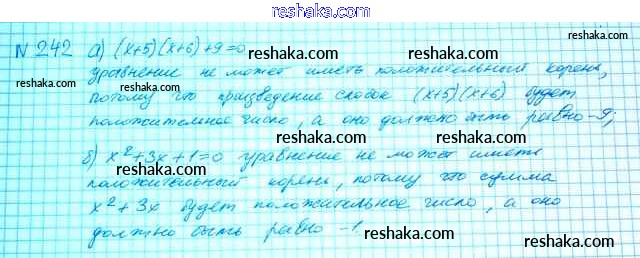 reshaka.com
№ 242 а) (x+5)(x+6)+9=0 reshaka.com
уравнение не может иметь положительный корень,
reshaka.com reshaka.com
потому что призведение скобок (x+5)(x+6) будет
reshaka.com
положительное число, а оно должно быть равно -9;
reshaka.com reshaka.com
б) x²+3x+1=0 уравнение не может иметь
reshaka.com
положительный корень, потому что сумма
reshaka.com reshaka.com
x²+3x будет положительное число, а оно
reshaka.com
должно быть равно -1.
reshaka.com reshaka.com